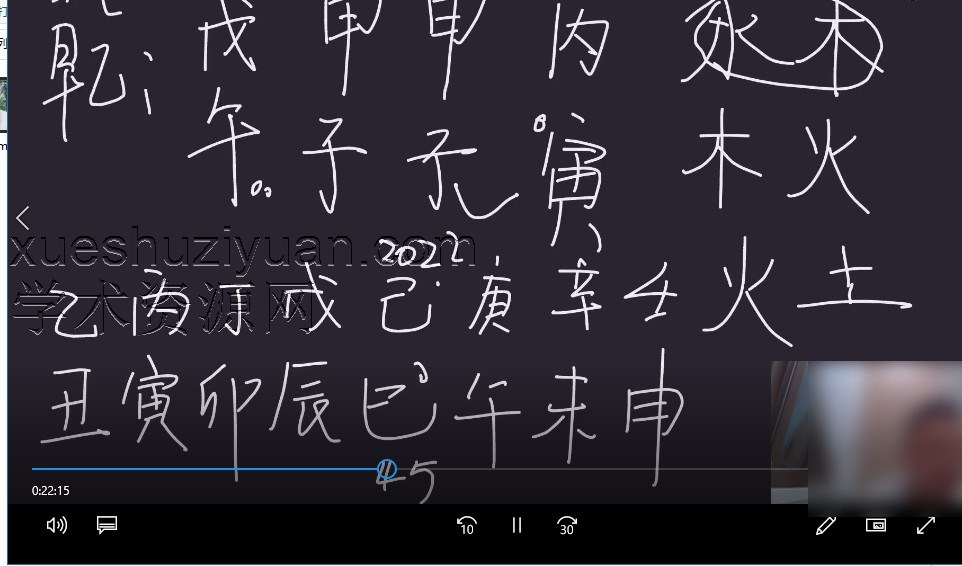 乾: 戊 申 申 丙 水 木
午 子 子 寅 木 火
2022
xueshuziyuan.com
学术资源网
乙 丙 丁 戊 己 庚 辛 壬 火 土
丑 寅 卯 辰 巳 午 未 申
45
0:22:15
10
30